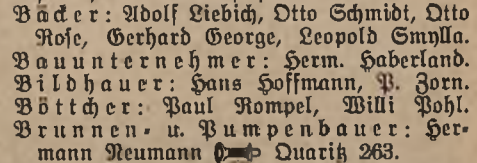 Bäcker: Adolf Liebich, Otto Schmidt, Otto
Rose, Gerhard George, Leopold Smylla.
Bauunternehmer: Herm. Haberland.
Bildhauer: Hans Hoffmann, P. Zorn.
Böttcher: Paul Rompel, Willi Pohl.
Brunnen- u. Pumpenbauer: Her-
mann Neumann Quaritz 263.